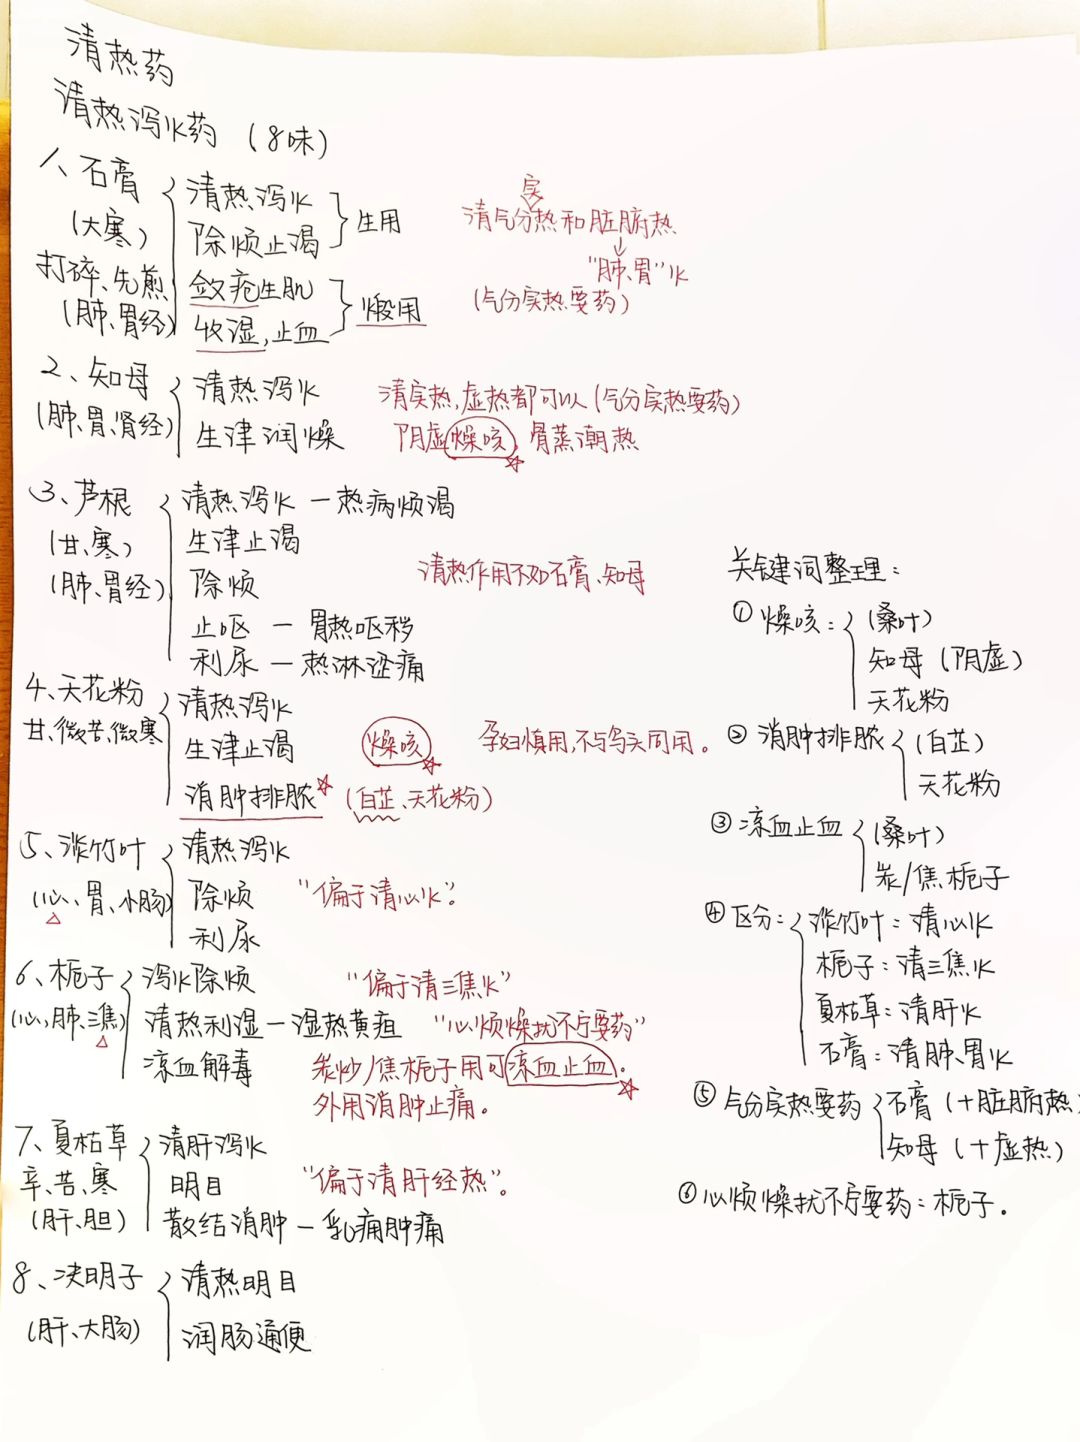 清热药
清热泻火药（8味）
1、石膏
（大寒）
打碎、先煎
（肺、胃经）
清热泻火
除烦止渴
生用
敛疮生肌
收湿,止血
煅用
实
清气分热和脏腑热
↓
"肺、胃"火
（气分实热要药）
2、知母
（肺、胃、肾经）
清热泻火
生津润燥
清实热,虚热都可以（气分实热要药）
阴虚燥咳,骨蒸潮热
3、芦根
（甘、寒）
（肺、胃经）
清热泻火—热病烦渴
生津止渴
除烦
止呕—胃热呕秽
利尿—热淋涩痛
清热作用不如石膏、知母
4、天花粉
甘、微苦、微寒
清热泻火
生津止渴
消肿排脓
燥咳
（白芷、天花粉）
孕妇慎用,不与乌头同用。
5、淡竹叶
（心、胃、小肠）
清热泻火
除烦
利尿
"偏于清心火"。
6、栀子
（心,肺、三焦）
泻火除烦
清热利湿—湿热黄疸
凉血解毒
"偏于清三焦火"
"心烦燥扰不宁要药"
炭炒/焦栀子用可凉血止血。
外用消肿止痛。
7、夏枯草
辛、苦、寒
（肝、胆）
清肝泻火
明目
散结消肿—乳痈肿痛
"偏于清肝经热"。
8、决明子
（肝、大肠）
清热明目
润肠通便
关键词整理：
①燥咳：（桑叶）
知母（阴虚）
天花粉
②消肿排脓（白芷）
天花粉
③凉血止血（桑叶）
炭/焦栀子
④区分：淡竹叶：清心火
栀子：清三焦火
夏枯草：清肝火
石膏：清肺、胃火
⑤气分实热要药石膏（+脏腑热）
知母（+虚热）
⑥心烦燥扰不宁要药：栀子.